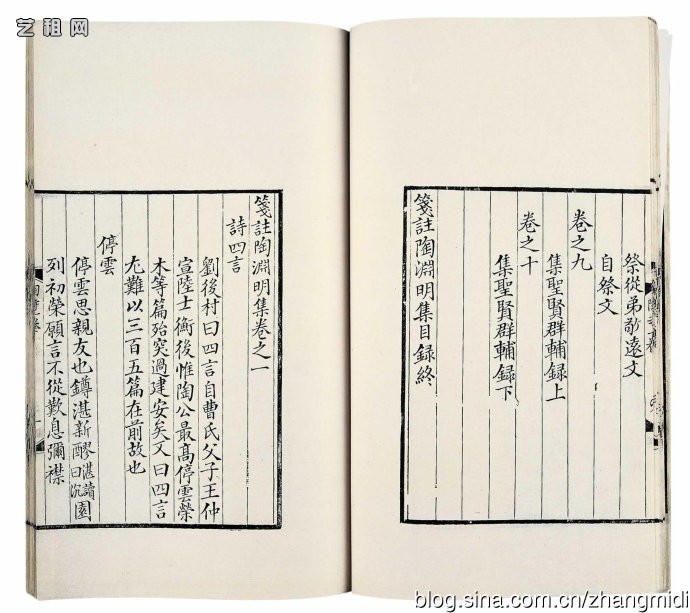 艺租网
祭從弟敬遠文
自祭文
卷之九
集聖賢群輔録上
卷之十
集聖賢群輔録下
箋註陶淵明集目録終
箋註陶淵明集卷之一
詩四言
劉後村曰四言自曹氏父子王仲
宣陸士衡後惟陶公最高停雲榮
木等篇殆突過建安矣又曰四言
尤難以三百五篇在前故也
停雲
停雲思親友也罇湛新醪湛讀曰沉園
列初榮願言不從歎息彌襟
blog.sina.com.cn/zhangmidi